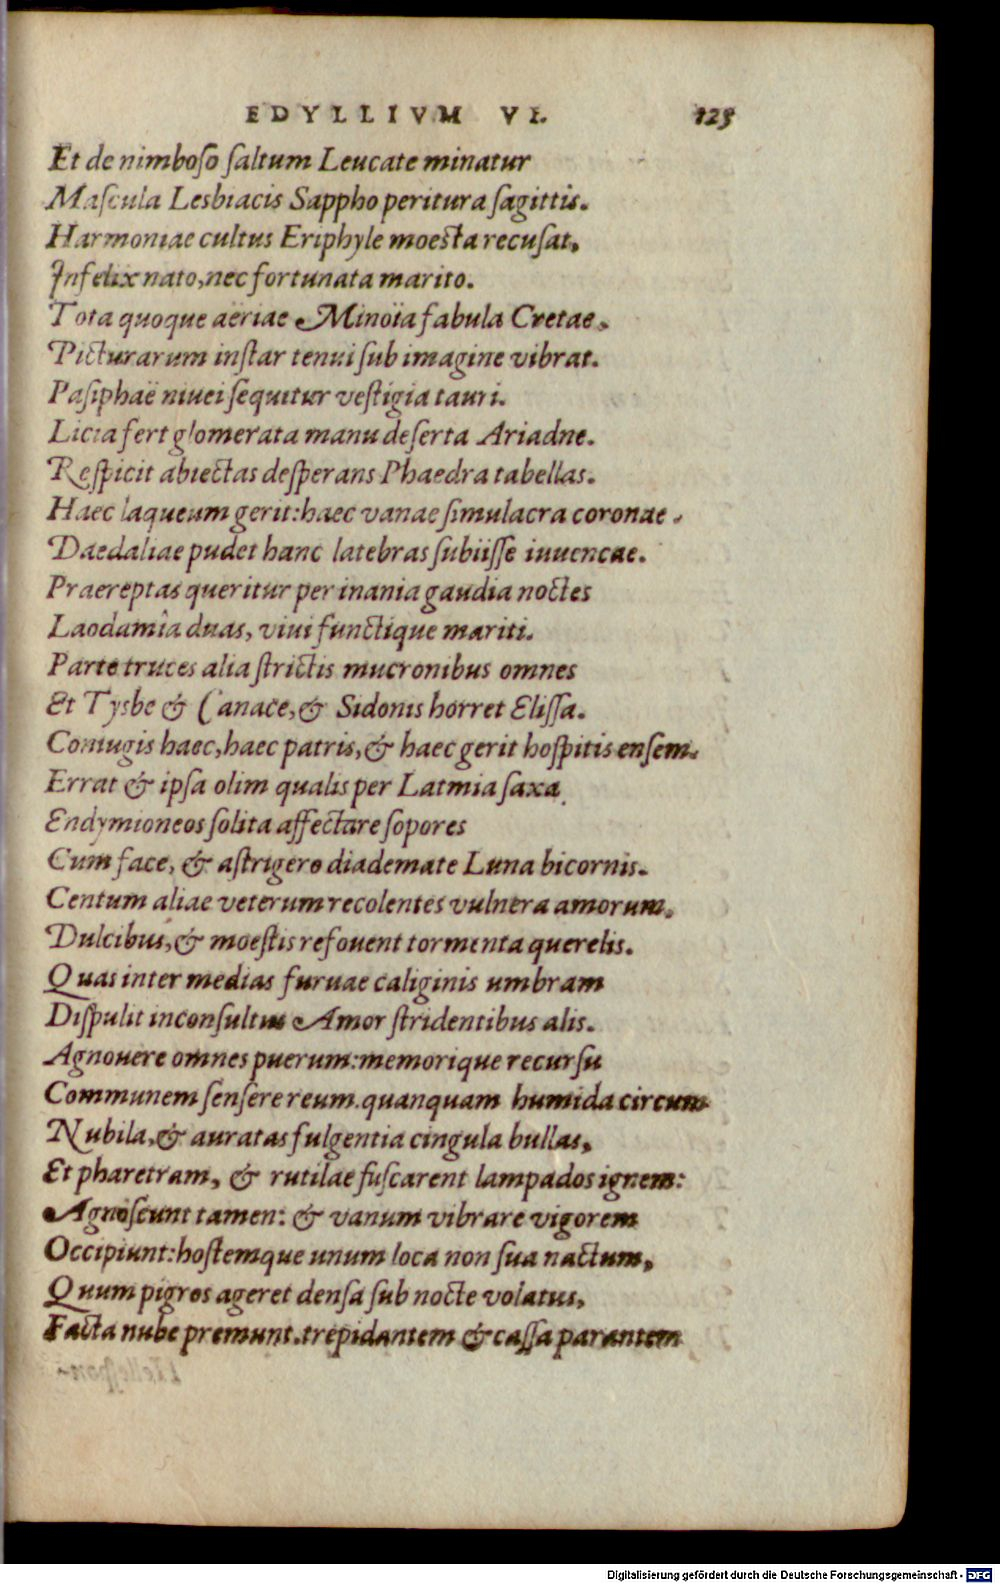 EDYLLIVM VI. 125
Et de nimboso saltum Leucate minatur
Mascula Lesbiacis Sappho peritura sagittis.
Harmoniae cultus Eriphyle moesta recusat,
Infelix nato, nec fortunata marito.
Tota quoque aëriae Minoïa fabula Cretae,
Picturarum instar tenui sub imagine vibrat.
Pasiphaë niuei sequitur vestigia tauri.
Licia fert glomerata manu deserta Ariadne.
Respicit abiectas desperans Phaedra tabellas.
Haec laqueum gerit: haec vanae simulacra coronae.
Daedaliae pudet hanc latebras subiisse iuuencae.
Praereptas queritur per inania gaudia noctes
Laodamîa duas, viui functique mariti.
Parte truces alia strictis mucronibus omnes
Et Tysbe & Canace, & Sidonis horret Elissa.
Coniugis haec, haec patris, & haec gerit hospitis ensem.
Errat & ipsa olim qualis per Latmia saxa
Endymioneos solita affectare sopores
Cum face, & astrigero diademate Luna bicornis.
Centum aliae veterum recolentes vulnera amorum,
Dulcibus, & moestis refouent tormenta querelis.
Quas inter medias furuae caliginis umbram
Dispulit inconsultus Amor stridentibus alis.
Agnouere omnes puerum: memorique recursu
Communem sensere reum. quanquam humida circum
Nubila, & auratas fulgentia cingula bullas,
Et pharetram, & rutilae fuscarent lampados ignem:
Agnoscunt tamen: & vanum vibrare vigorem
Occipiunt: hostemque unum loca non sua nactum,
Quum pigros ageret densa sub nocte volatus,
Facta nube premunt. trepidantem & cassa parantem
Digitalisierung gefördert durch die Deutsche Forschungsgemeinschaft - DFG